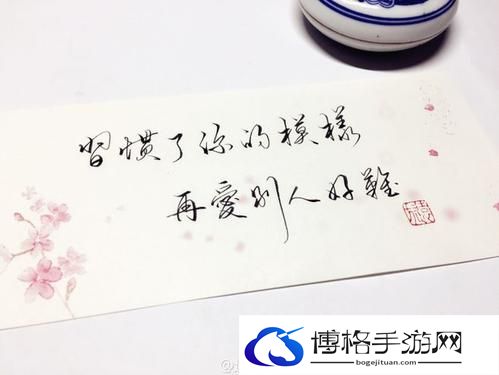 習慣了你的模樣
再愛別人好難
博格手游网
bogejituan.com